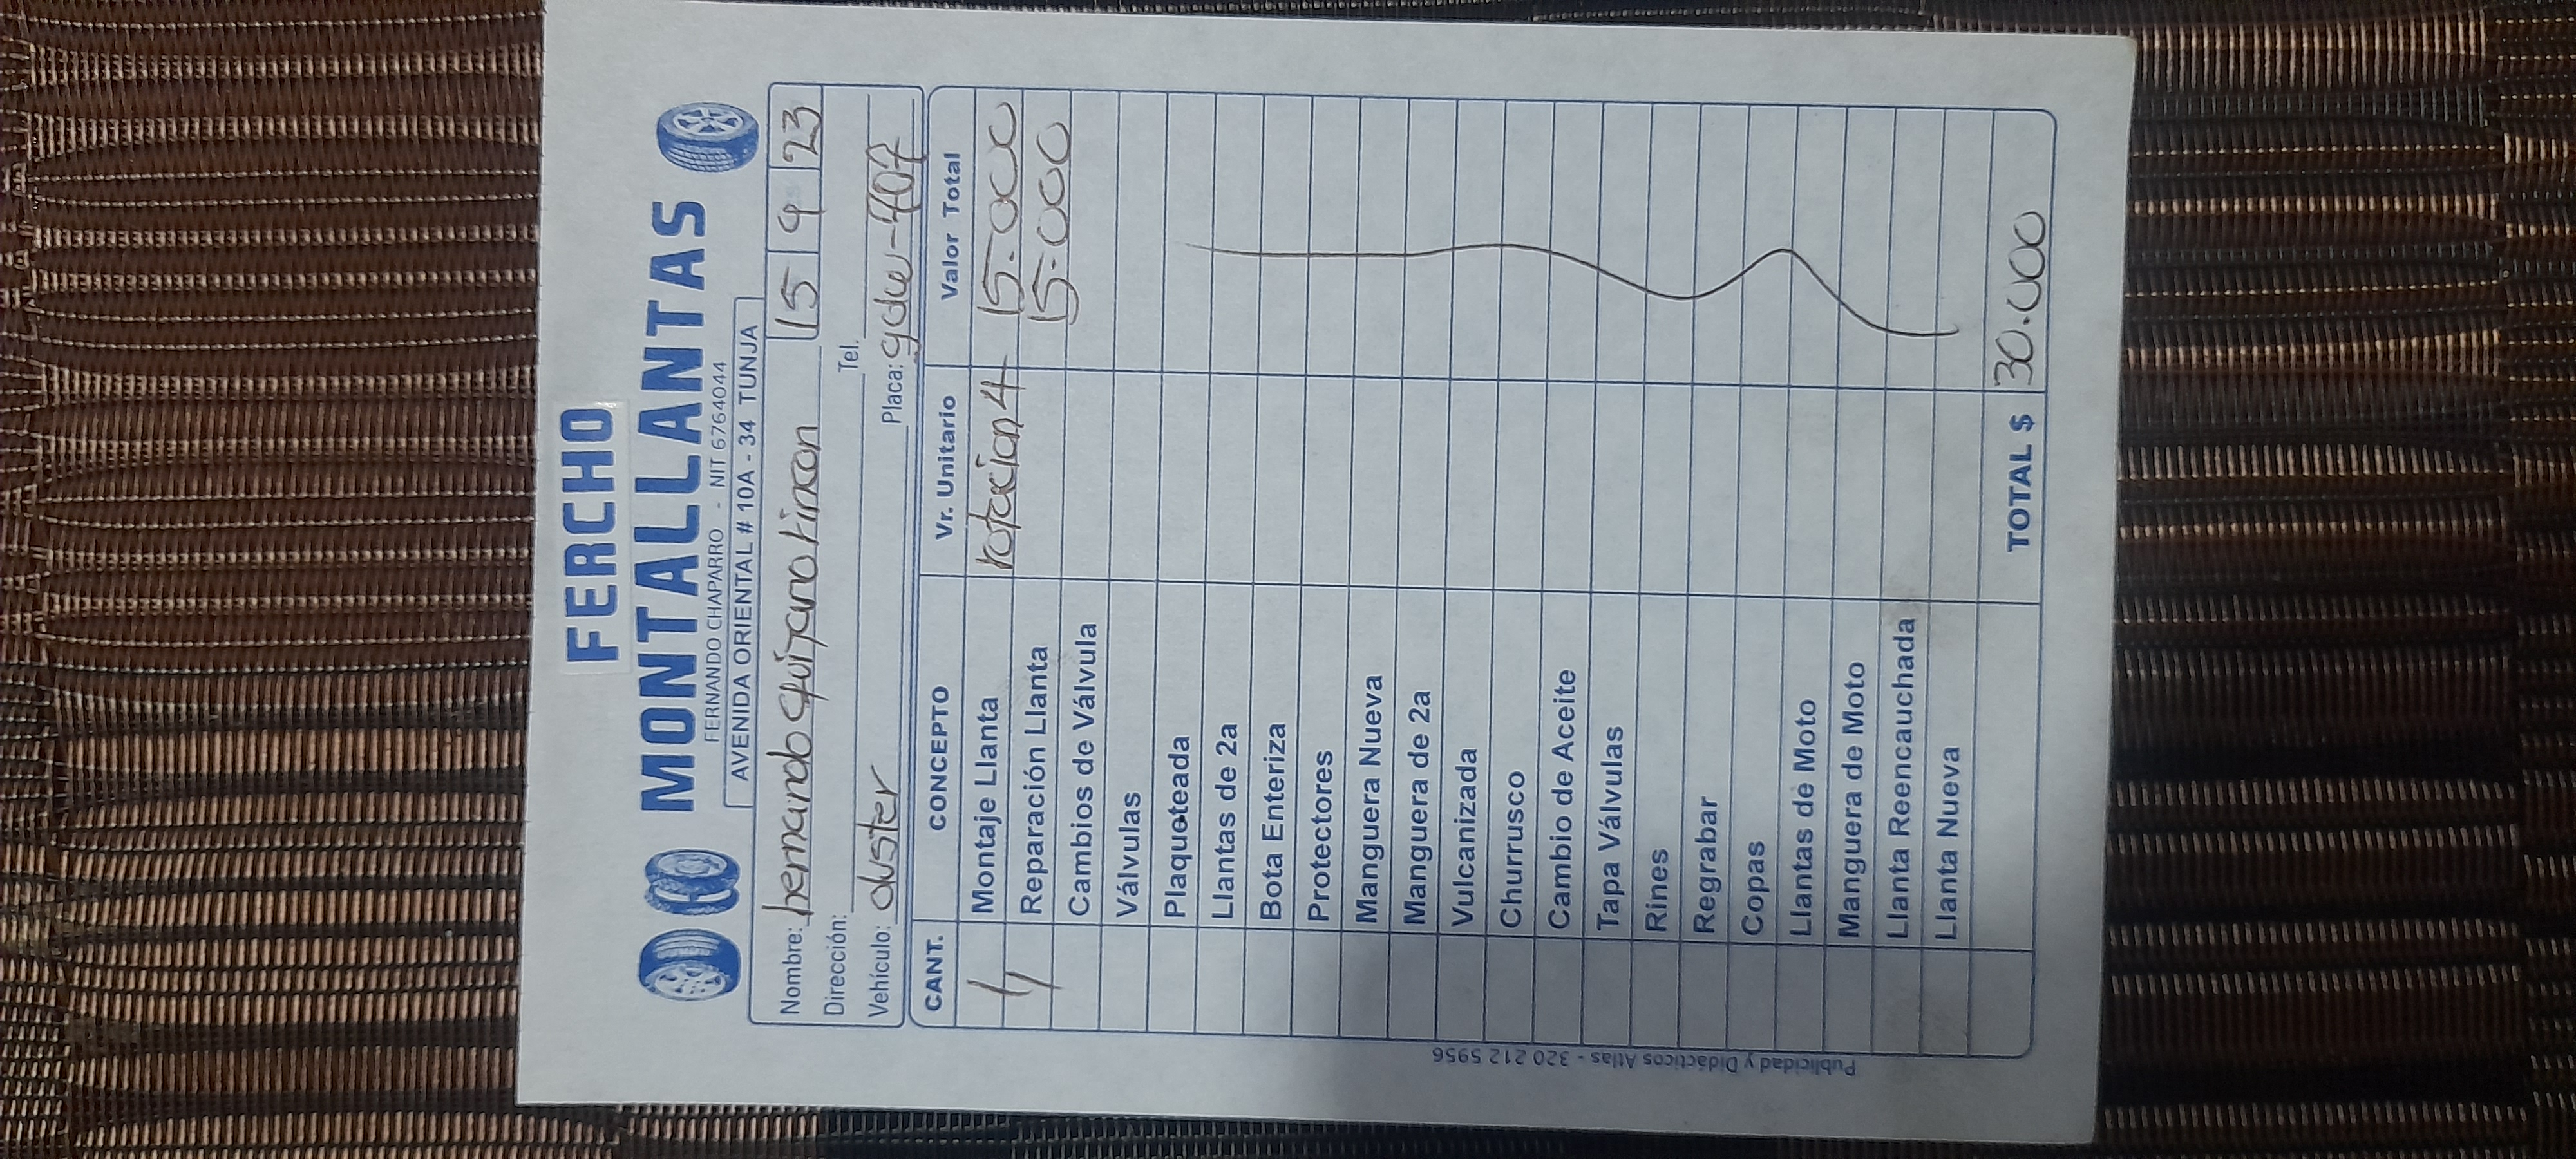 FERCHO
MONTALLANTAS
FERNANDO CHAPARRO - NIT 6764044
AVENIDA ORIENTAL # 10A - 34 TUNJA
Nombre: hernando quijano rincon 15 9 23
Dirección: Tel.
Vehículo: duster Placa: gdw-407
CANT. CONCEPTO Vr. Unitario Valor Total
1 Montaje Llanta rotacion 4 15.000
1 Reparación Llanta 15.000
Cambios de Válvula
Válvulas
Plaqueteada
Llantas de 2a
Bota Enteriza
Protectores
Manguera Nueva
Manguera de 2a
Vulcanizada
Churrusco
Cambio de Aceite
Tapa Válvulas
Rines
Regrabar
Copas
Llantas de Moto
Manguera de Moto
Llanta Reencauchada
Llanta Nueva
TOTAL $ 30.000
Publicidad y Didácticos Atlas - 320 212 5956